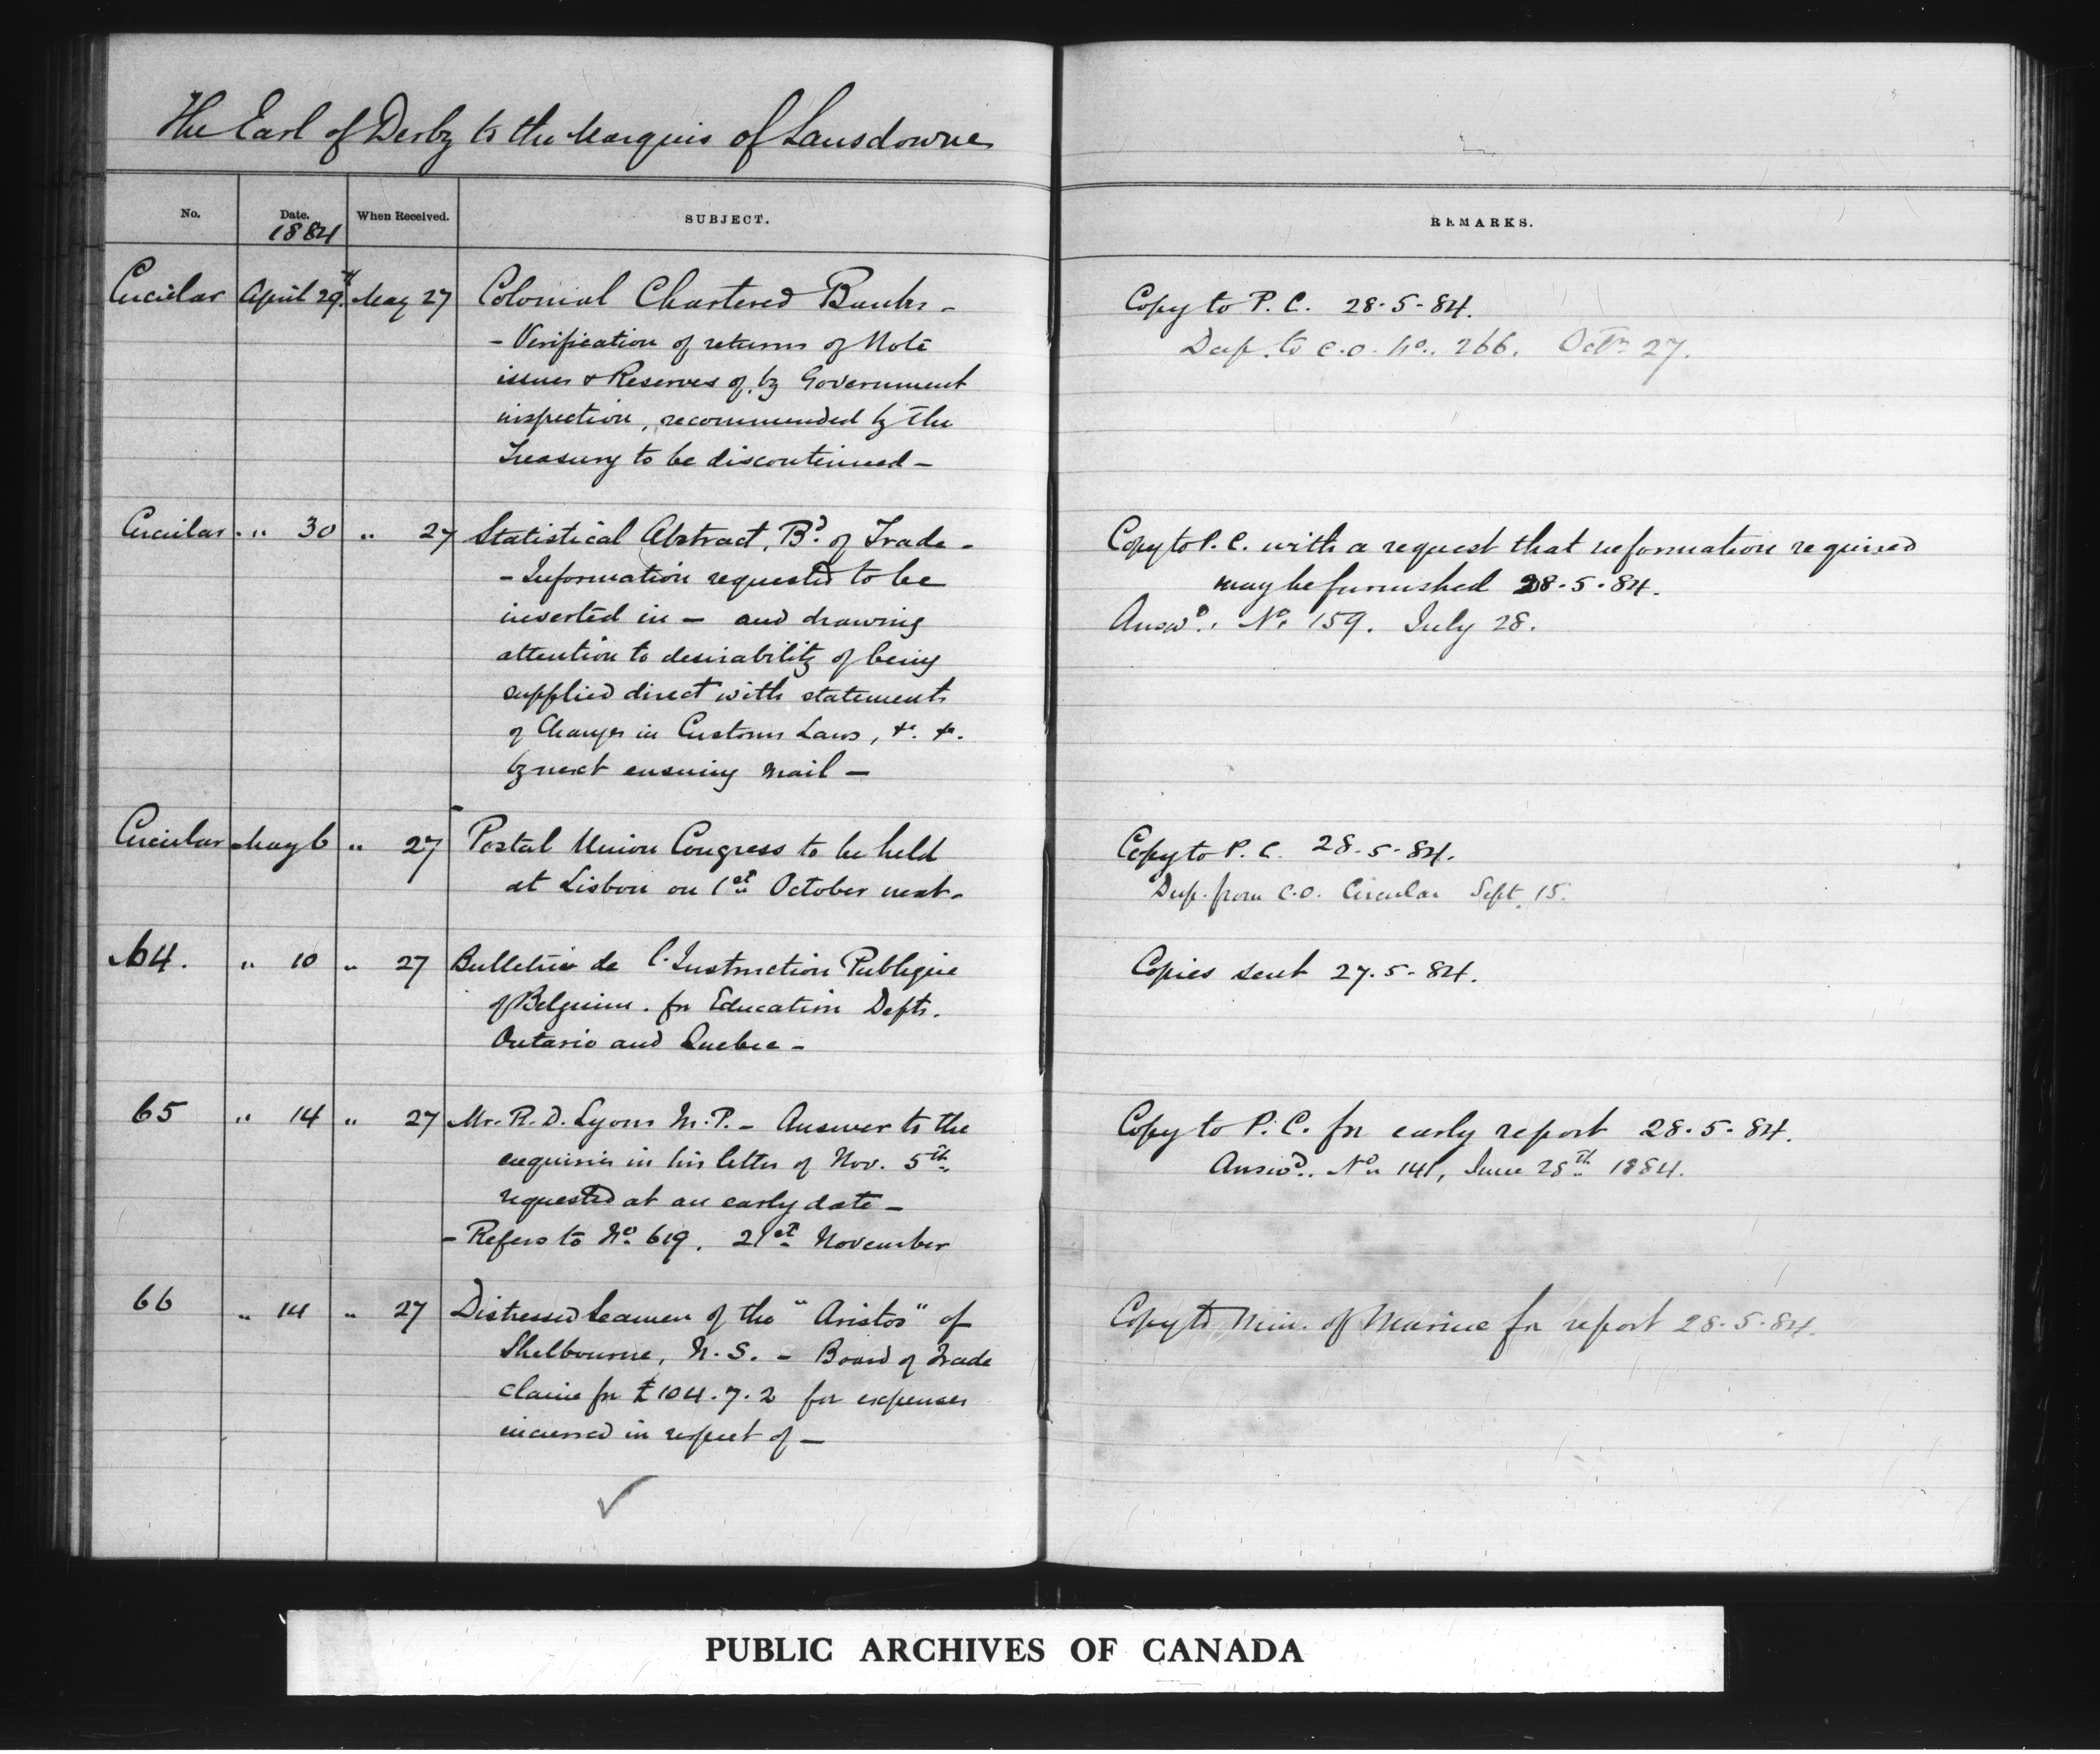 The Earl of Derby to the Marquis of Lansdowne
No. Date. When Received. SUBJECT. REMARKS.
1884
Circular April 29th May 27 Colonial Chartered Banks - Copy to P. C. 28-5-84.
- Verification of returns of Note Desp. to C.O. No. 266. Octr. 27.
issues & Reserves of, by Government
inspection, recommended by the
Treasury to be discontinued -
Circular " 30 " 27 Statistical Abstract, Bd. of Trade - Copy to P. C. with a request that information required
- Information requested to be may be furnished 28-5-84.
inserted in - and drawing Answd. No. 159. July 28.
attention to desirability of being
supplied direct with statements
of Changes in Customs Laws, &c. &c.
by next ensuing mail -
Circular May 6 " 27 Postal Union Congress to be held Copy to P. C. 28-5-84.
at Lisbon on 1st October next - Desp. from C.O. Circular Sept. 15.
64. " 10 " 27 Bulletin de l'Instruction Publique Copies sent 27-5-84.
of Belgium. for Education Depts.
Ontario and Quebec -
65 " 14 " 27 Mr. R. D. Lyons M.P. - Answer to the Copy to P. C. for early report 28-5-84.
enquiries in his letter of Nov. 5th Answd. No. 141, June 28th 1884.
requested at an early date -
- Refers to No. 619. 21st November
66 " 14 " 27 Distressed Seamen of the "Aristos" of Copy to Min. of Marine for report 28-5-84.
Shelbourne, N.S. - Board of Trade
claim for £104.7.2 for expenses
incurred in respect of -
PUBLIC ARCHIVES OF CANADA